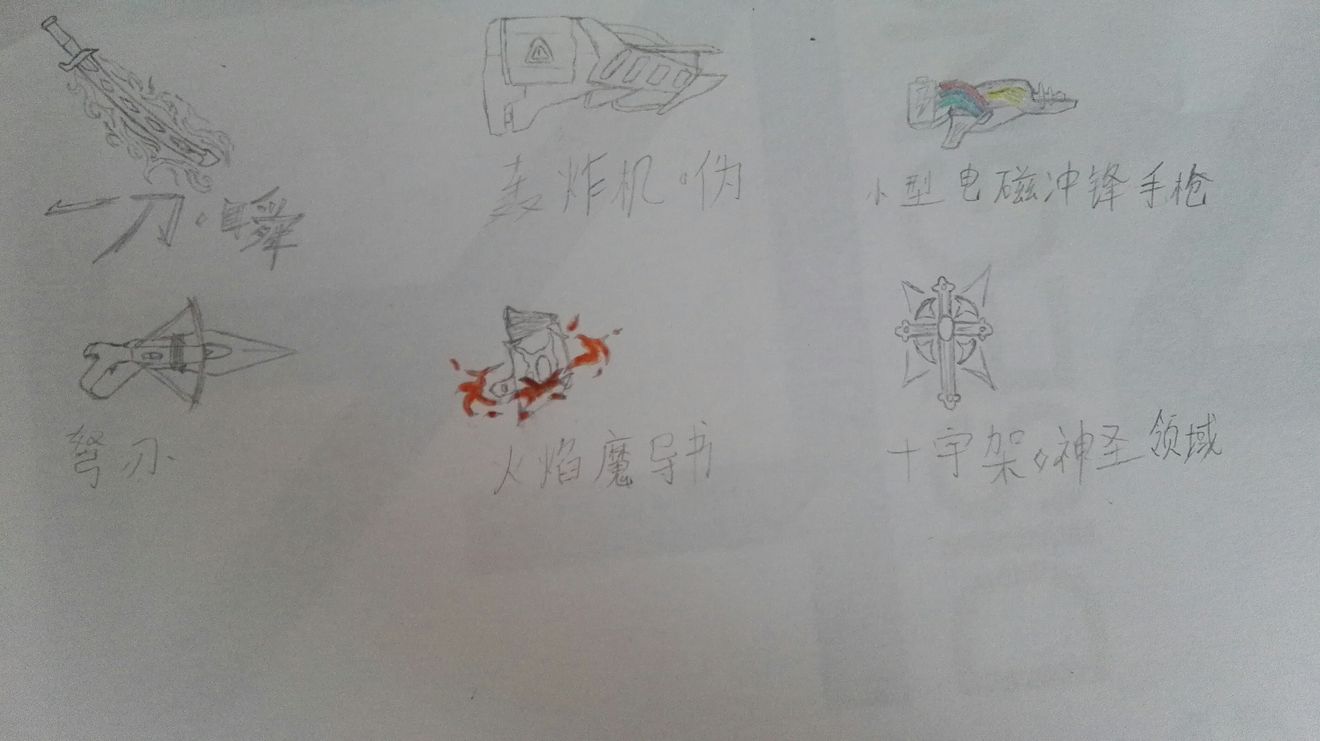 一刀·瞬
轰炸机·伪
小型电磁冲锋手枪
弩刃
火焰魔导书
十字架·神圣领域